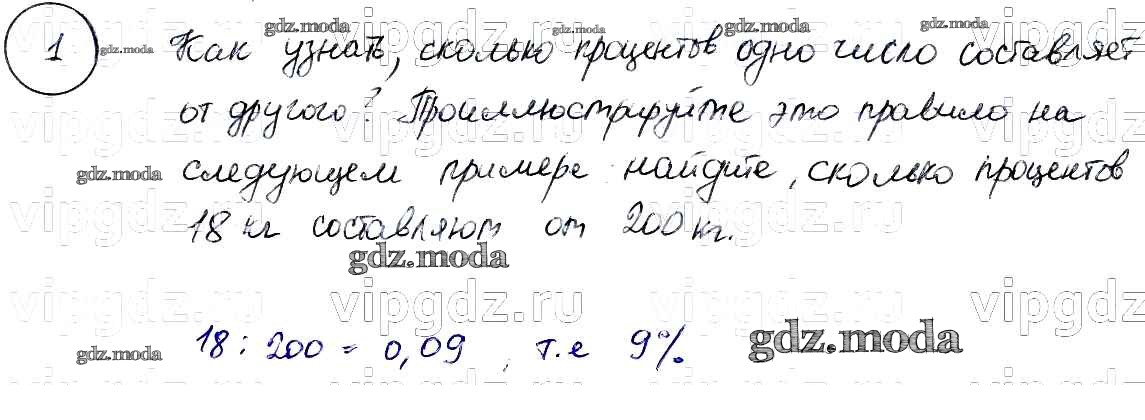 1 Как узнать, сколько процентов одно число составляет
от другого? Проиллюстрируйте это правило на
следующем примере найдите, сколько процентов
18 кг составляют от 200 кг.
18 : 200 = 0,09, т.е 9%
gdz.moda
vipgdz.ru